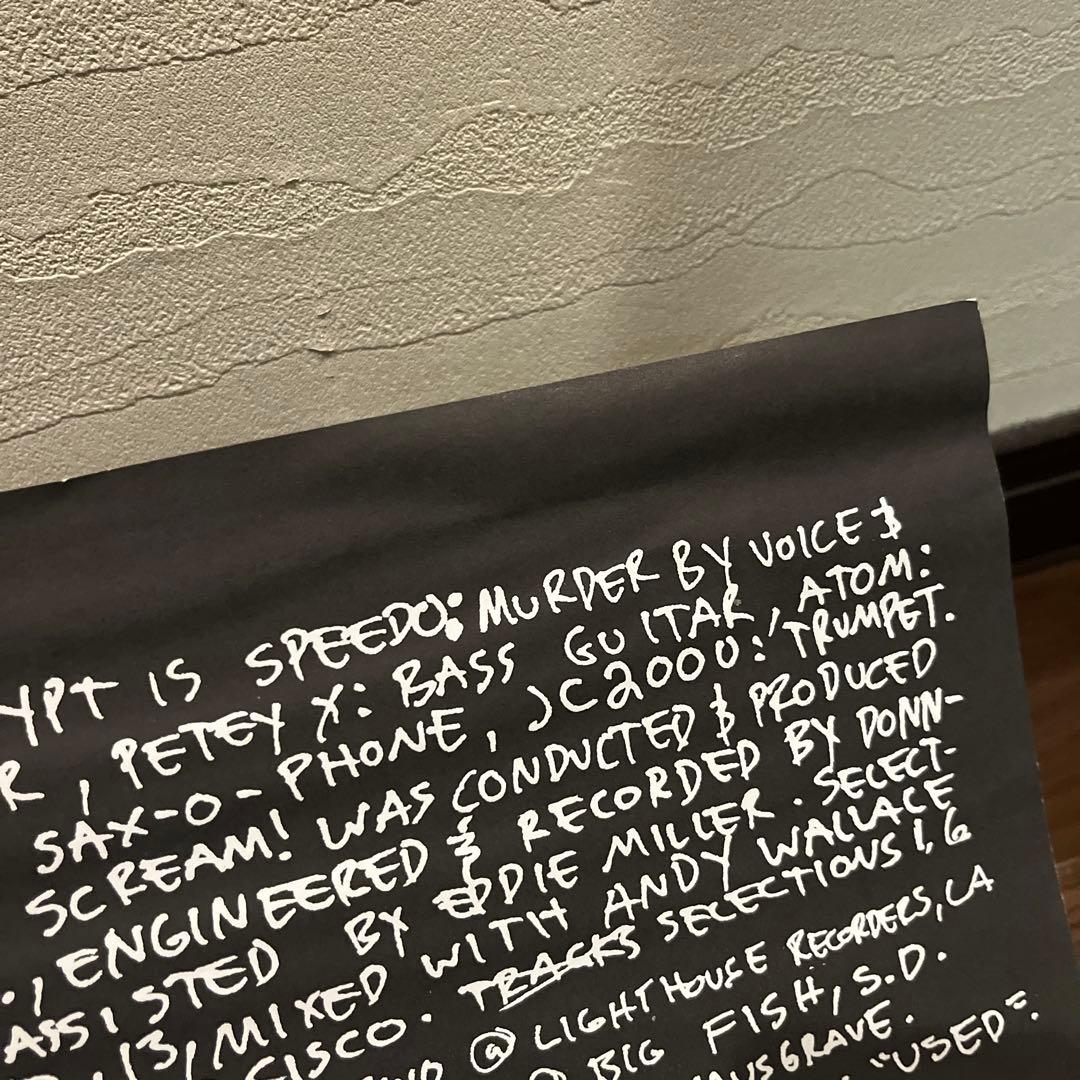 YPT IS SPEEDO: MURDER BY VOICE &
R, PETEY X: BASS GUITAR, ATOM:
SAX-O-PHONE, JC2000: TRUMPET.
SCREAM! WAS CONDUCTED & PRODUCED
., ENGINEERED & RECORDED BY DONN-
ASSISTED BY EDDIE MILLER. SELECT-
, 13, MIXED WITH ANDY WALLACE
CISCO. TRACKS SELECTIONS 1, 6
@ LIGHTHOUSE RECORDERS, LA
BIG FISH, S.D.
USGRAVE.
"USED":